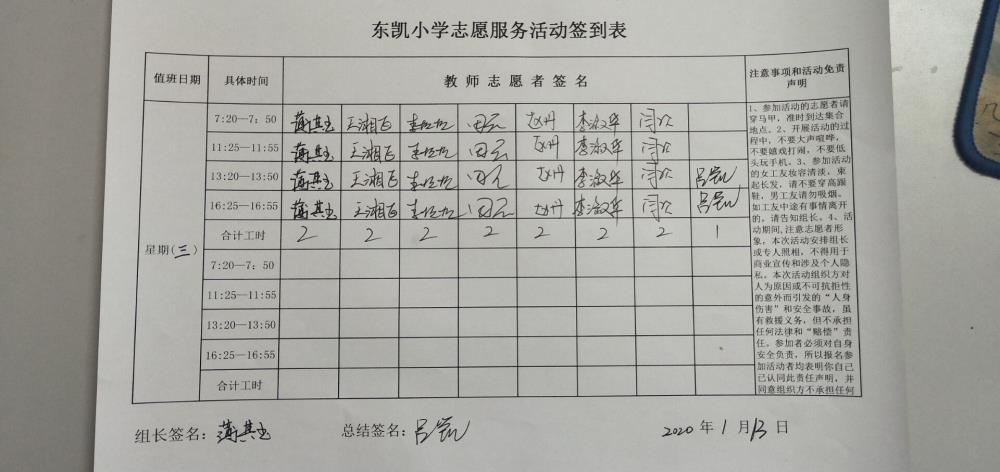 东凯小学志愿服务活动签到表
值班日期 具体时间 教师志愿者签名 注意事项和活动免责声明
7:20—7:50 王湘 田 赵丹 李淑华 闫欣
11:25—11:55 王湘 田 赵丹 李淑华 闫欣
13:20—13:50 王湘 田 赵丹 李淑华 闫欣 吕
16:25—16:55 王湘 田 赵丹 李淑华 闫欣 吕
星期(三) 合计工时 2 2 2 2 2 2 2 1
7:20—7:50
11:25—11:55
13:20—13:50
16:25—16:55
合计工时
1、参加活动的志愿者请
穿马甲，准时到达集合
地点。2、开展活动的过
程中，不要大声喧哗，
不要嬉戏打闹，不要低
头玩手机。3、参加活动
的女工友妆容清淡，束
起长发，请不要穿高跟
鞋，男工友请勿吸烟。
如工友中途有事情离开
的，请告知组长。4、活
动期间，注意志愿者形
象，本次活动安排组长
或专人照相，不得用于
商业宣传和涉及个人隐
私。本次活动组织方对
人为原因或不可抗拒性
的意外而引发的“人身
伤害”和安全事故，虽
有救援义务，但不承担
任何法律和“赔偿”责
任。参加者必须对自身
安全负责，所以报名参
加活动者均表明你自己
已认同此责任声明，并
同意组织方不承担任何
组长签名： 总结签名：吕 2020 年 1 月 13 日